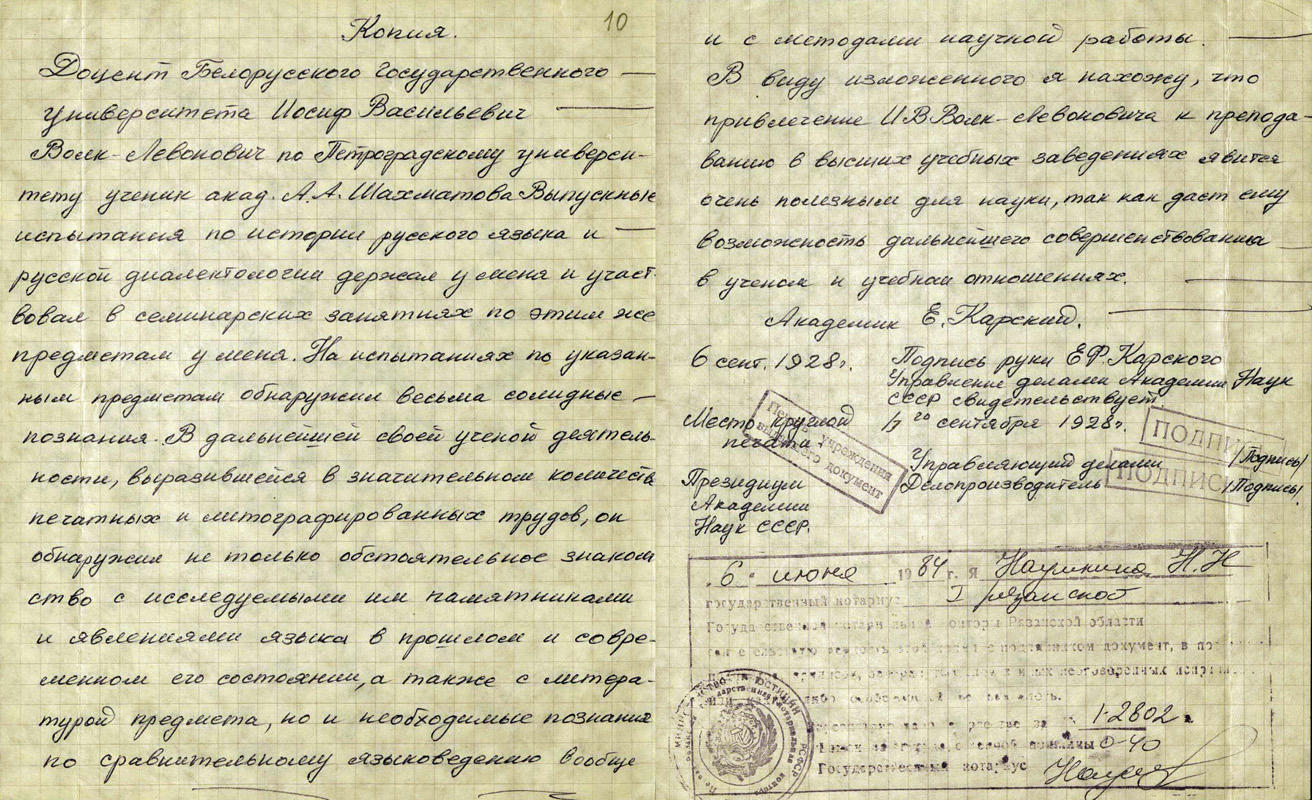 10
Копия.
Доцент Белорусского государственного
университета Иосиф Васильевич
Волк-Левонович по Петроградскому универси-
тету ученик акад. А.А. Шахматова Выпускные
испытания по истории русского языка и
русской диалектологии держал у меня и участ-
вовал в семинарских занятиях по этим же
предметам у меня. На испытаниях по указан-
ным предметам обнаружил весьма солидные
познания. В дальнейшей своей ученой деятель-
ности, выразившейся в значительном количеств
печатных и литографированных трудов, он
обнаружил не только обстоятельное знаком
ство с исследуемыми им памятниками
и явлениями языка в прошлом и совре-
менном его состоянии, а также с литера-
турой предмета, но и необходимые познания
по сравнительному языковедению вообще
и с методами научной работы.
В виду изложенного я нахожу, что
привлечение И.В.Волк-Левоновича к препода-
ванию в высших учебных заведениях явится
очень полезным для науки, так как даст ему
возможность дальнейшего совершенствования
в ученом и учебном отношениях.
Академик Е. Карский.
6 сент. 1928г.
Подпись руки Е.Ф.Карского
Управление делами Академии Наук
СССР свидетельствует
17 го сентября 1928г.
Место круглой
печати
Печать учреждения
выдавшего документ
Президиум
Академии
Наук СССР.
Управляющий делами /Подпись/
ПОДПИСЬ
Делопроизводитель /Подпись/
ПОДПИСЬ
6 июня 1984 г. Я Наумкина Н.Н
государственный нотариус I рязанской
Государственной нотариальной конторы Рязанской области
1-2802
0-40
Государственный нотариус
РСФСР